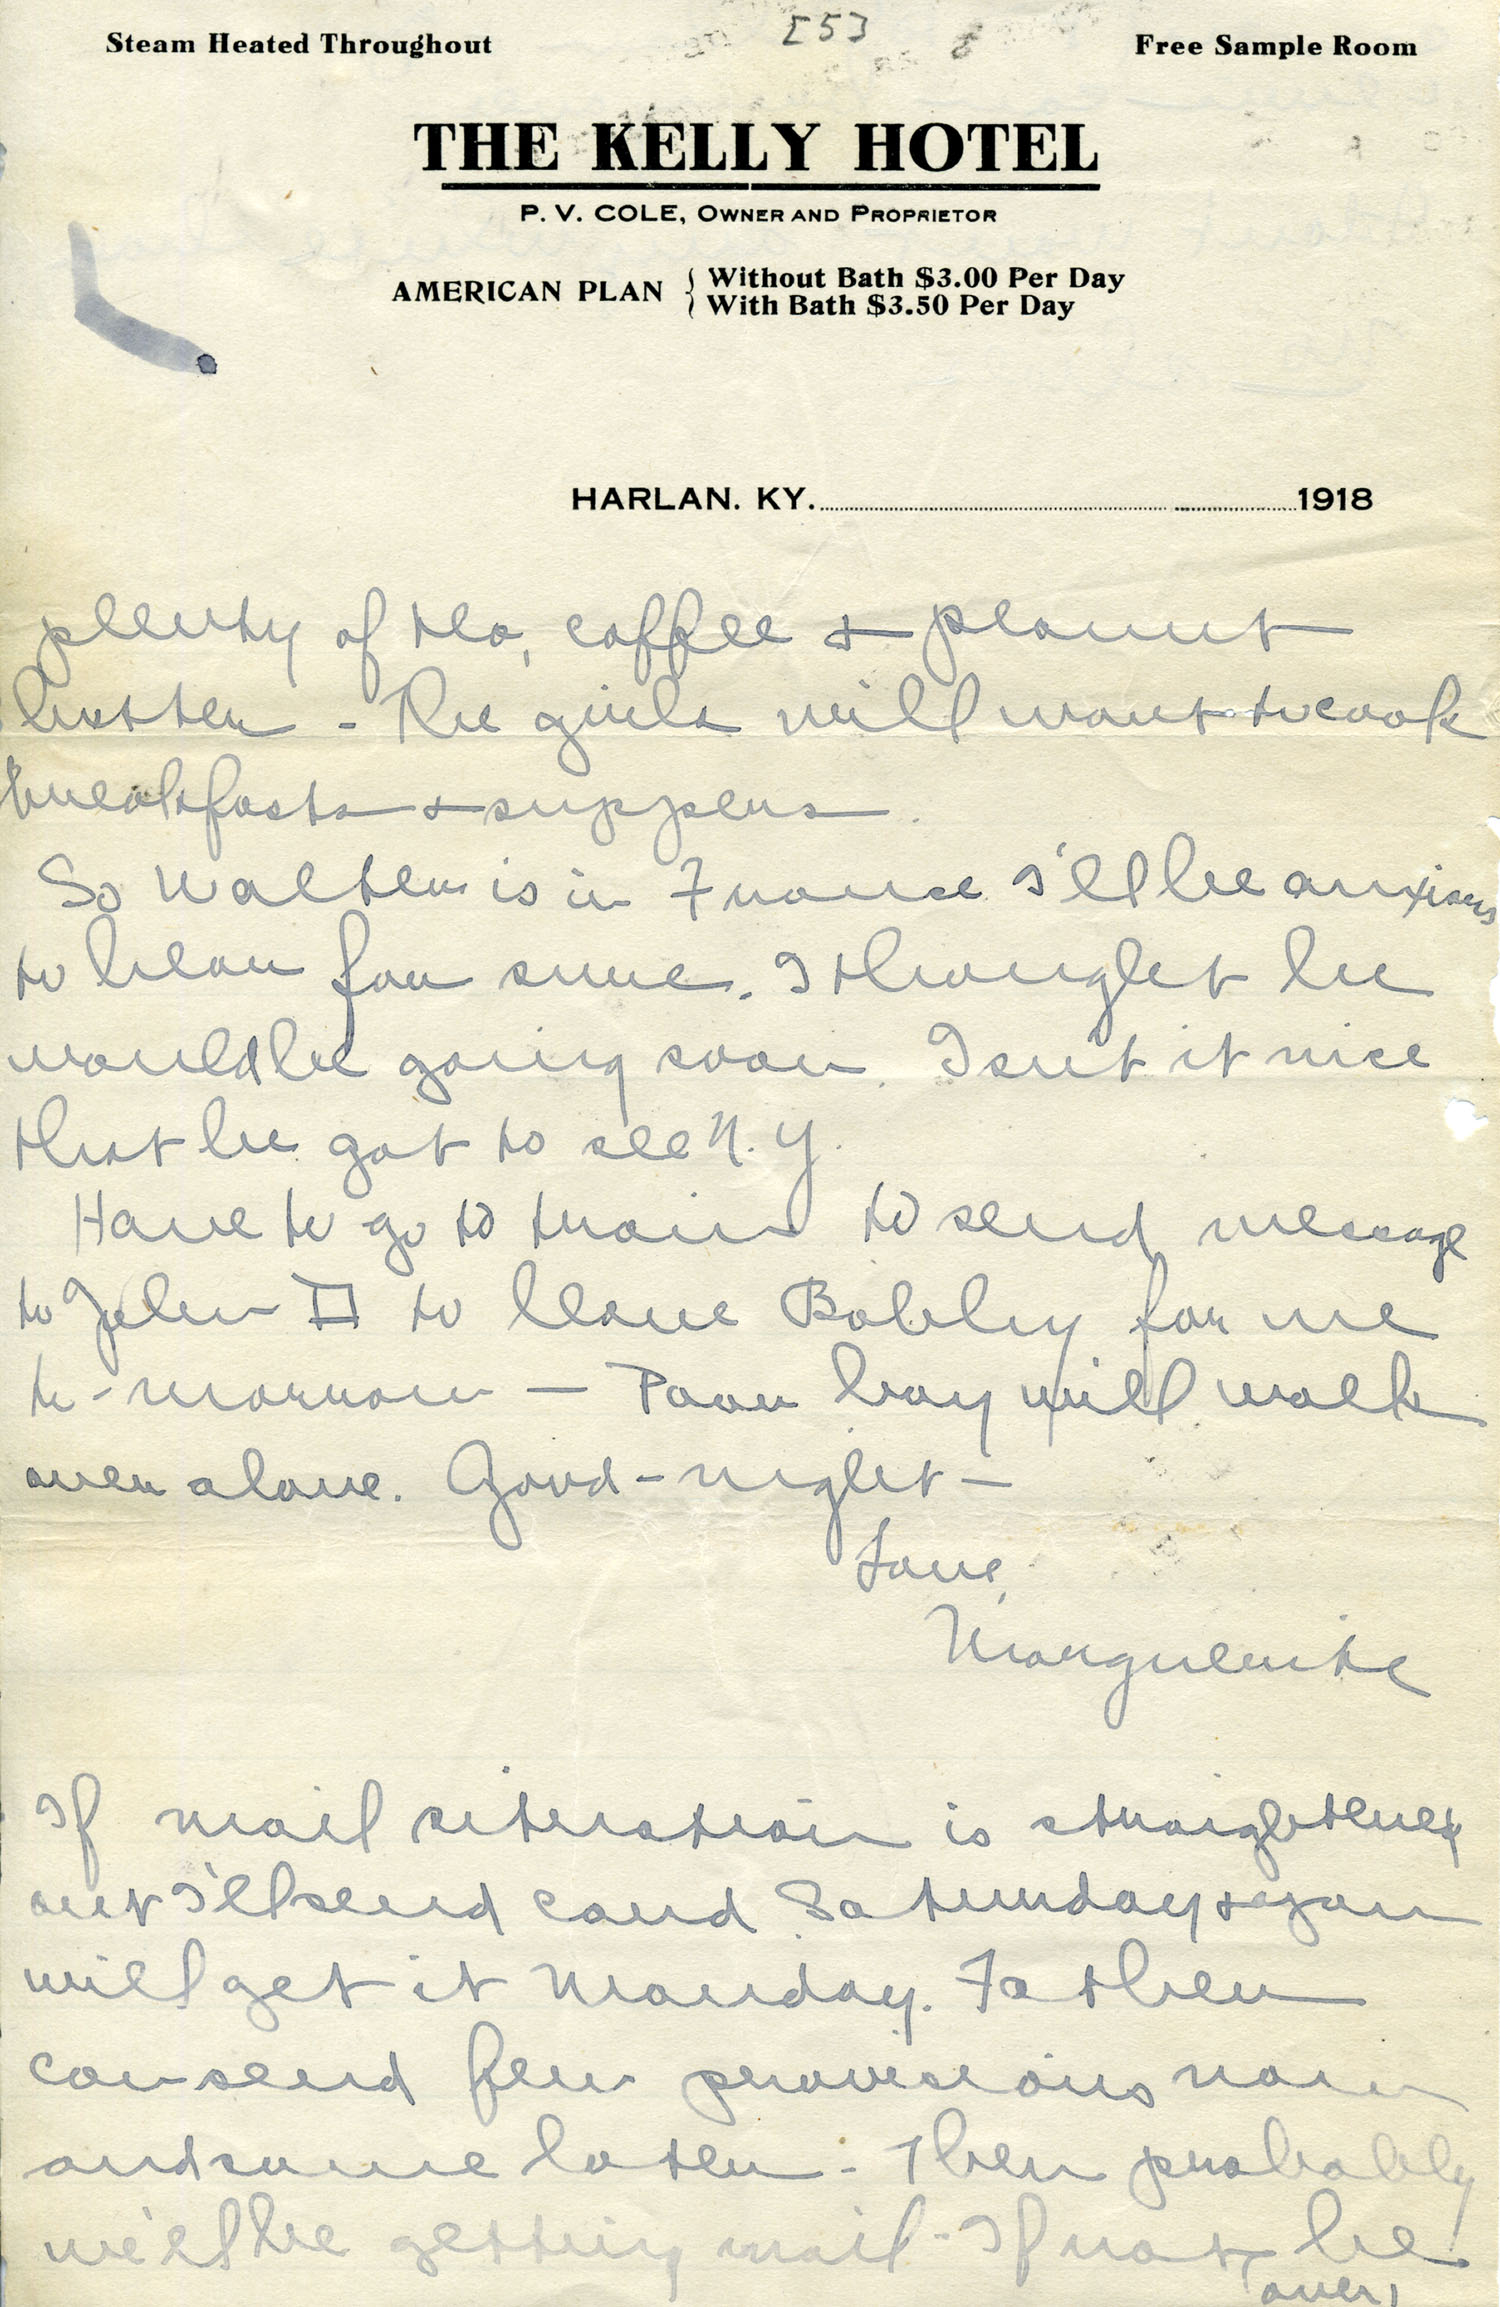 [53]
Steam Heated Throughout
Free Sample Room
THE KELLY HOTEL
P. V. COLE, OWNER AND PROPRIETOR
AMERICAN PLAN { Without Bath $3.00 Per Day
With Bath $3.50 Per Day
HARLAN. KY. 1918
plenty of tea, coffee & peanut
butter - The girls will want to cook
breakfasts & suppers.
So Walter is in France I'll be anxious
to hear for sure. I thought he
would be going soon. Isn't it nice
that he got to see N. Y.
Have to go to train to send message
to John to leave Bobby for me
to-morrow — Poor boy will walk
over alone. Good-night —
Love,
Marguerite
If mail situation is straightened
out I'll send card Saturday & you
will get it Monday. Father
can send few provisions now
and some later - Then probably
we'll be getting mail - If not he
(over)